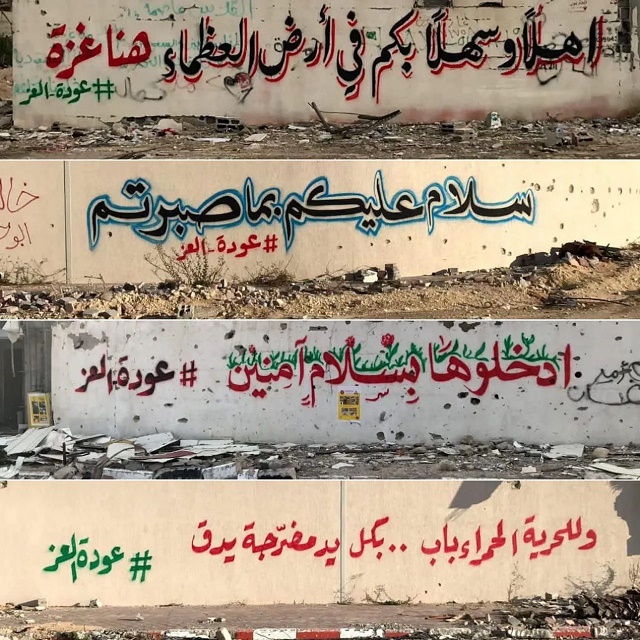 اهلًا وسهلًا بكم في أرض العظماء هنا غزة
#عودة_العز
سلام عليكم بما صبرتم
#عودة_العز
ادخلوها بسلام آمنين
#عودة_العز
وللحرية الحمراء باب .. بكل يد مضرّجة يدق
#عودة العز